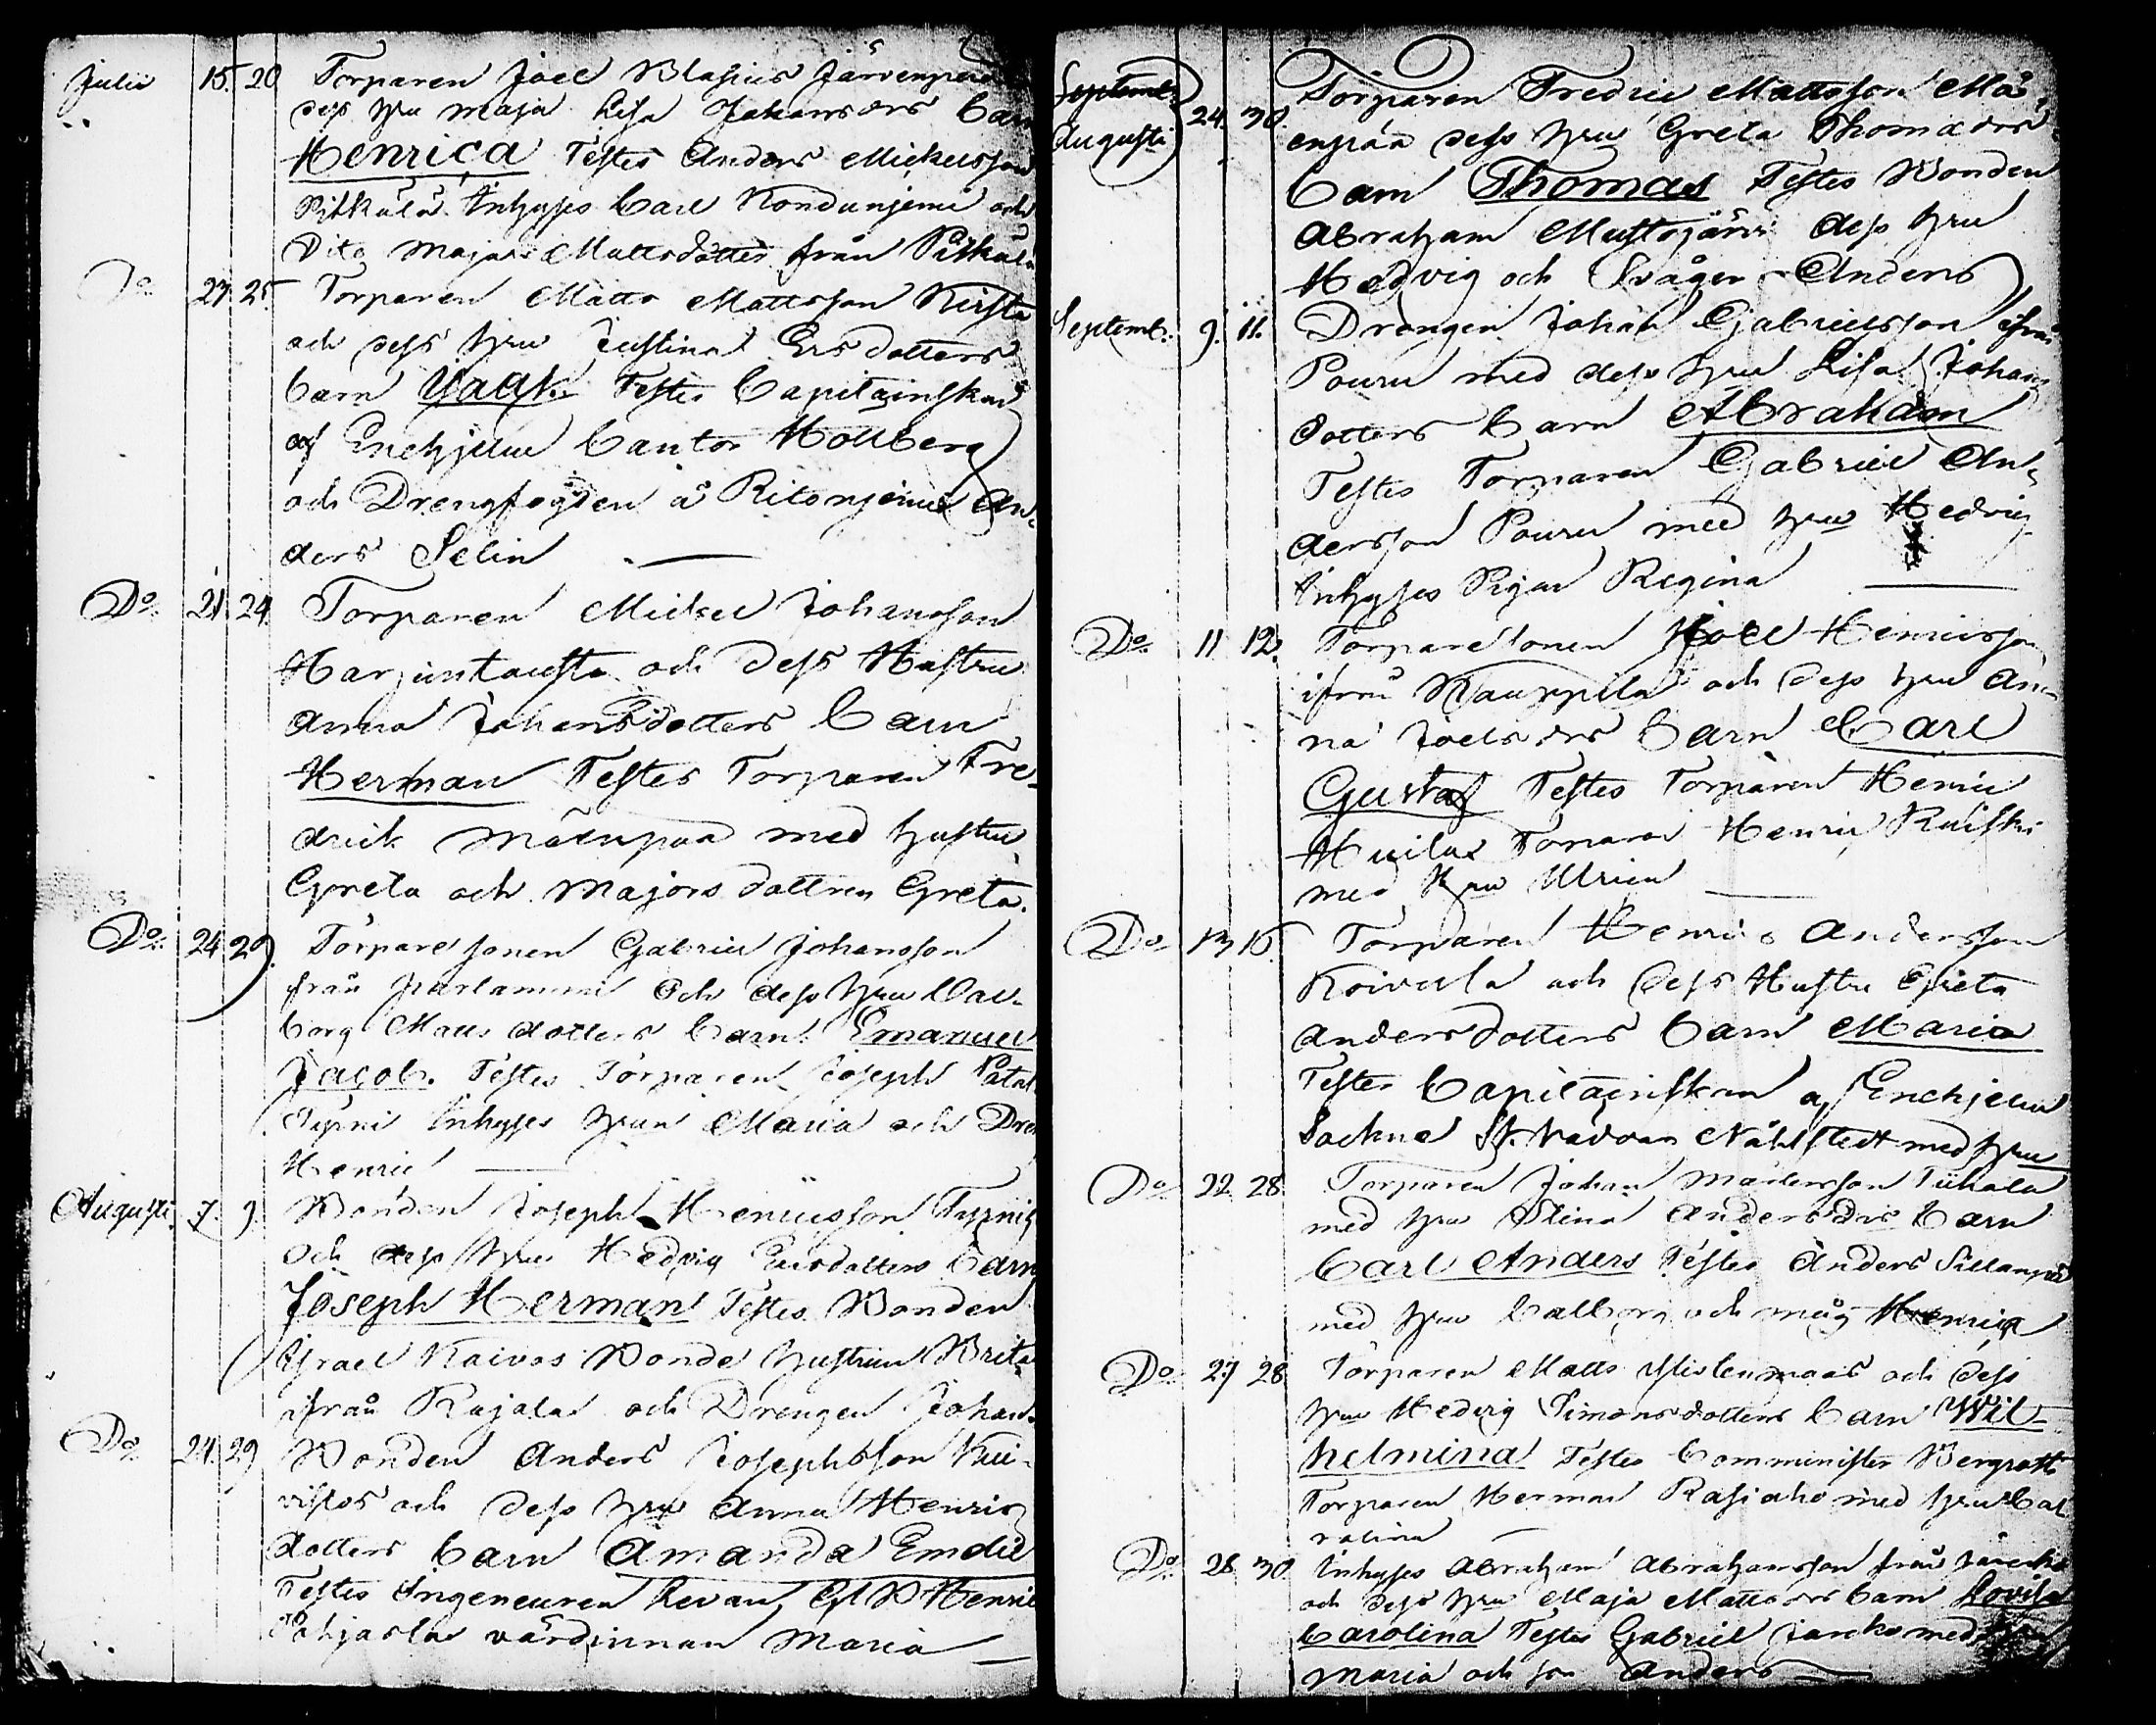 Julii 15. 20 Torparen Joel Blasius Järvenpää
dess hru Maja Lisa Johansdrs barn
Henrica Testes Anders Mickelsson
Pitkälä Inhyses Carl Kondunjemi och
Dito Majas Mattsdotter från Pitkälä
Do 23 25. Torparen Matts Mattsson Kirsta
och dess hru Justina Ersdotters
barn Isaak. Testes Capitainskan
af Enehjelm Cantor Hollberg
och Drengfogden å Ritoniemi An-
ders Selin —
Do 21. 24. Torparen Mickel Johansson
Harjuntausta och Dess Hustru
Anna Johansdotters barn
Herman Testes Torparen Fre-
drik Mäenpää med hustru
Greta och Majors dottren Greta.
Do 24 29. Torpare sonen Gabriel Johansson
från och dess hru Val-
borg Matts dotters barn Emanuel
Jacob. Testes Torparen Joseph
Typni Inhyses hrun Maria och Dren
Henric —
Augusti. 7. 9. Bonden Joseph Henricsson Typni
och dess hru Hedvig Ersdotters barn
Joseph Herman Testes Bonden
Israel Kaivos Bonde hustrun Brita
ifrån Rajala och Drengen Johan.
Do 24. 29 Bonden Anders Josephsson Kui-
vistos och dess hru Anna Henrics
dotters barn Amanda Emelie
Testes Ingeneuren Levan, Henric
Pohjasla värdinnan Maria —
Septemb.
Augusti 24. 30. Torparen Fredric Mattsson Mä-
enpää dess hru Greta Thomasdrs
barn Thomas Testes Bonden
Abraham Mustajärvi dess hru
Hedvig och Svåger Anders
Septemb. 9. 11. Drengen Johan Gabrielsson ifrån
Pouru med dess hru Lisa Johans
dotters barn Abraham
Testes Torparen Gabriel An-
dersson Pouru med hru Hedvig
Inhyses Pigan Regina —
Do 11 12. Torpare sonen Joel Henricsson
ifrån Kauppila och dess hru An-
na Joelsdrs barn Carl
Gustaf Testes Torparen Henric
Huilas Torparen Henric Ruiski
med hru Ulrica —
Do 13 15. Torparen Henric Andersson
Koivula och Dess Hustru Greta
Andersdotters barn Maria
Testes Capitainskan af Enehjelm
Sockne Skräddar Nåhlstedt med hru
Do 22 28. Torparen Johan Mårtensson Tiihala
med hru Stina Andersdrs barn
Carl Anders Testes Anders Sillanpää
med hru Valborg och måg Henric
Do 27 28 Torparen Matts Ylistenmaas och Dess
hru Hedvig Simonsdotters barn Wil-
helmina Testes Comminister Bergroth
Torparen Herman Rasiaho med hru Cat
rarina —
Do 28 30 Inhyses Abraham Abrahamsson från Jäneks
och dess hru Maja Mattsdrs barn Lovisa
Carolina Testes Gabriel Janeks med hru
Maria och son Anders —